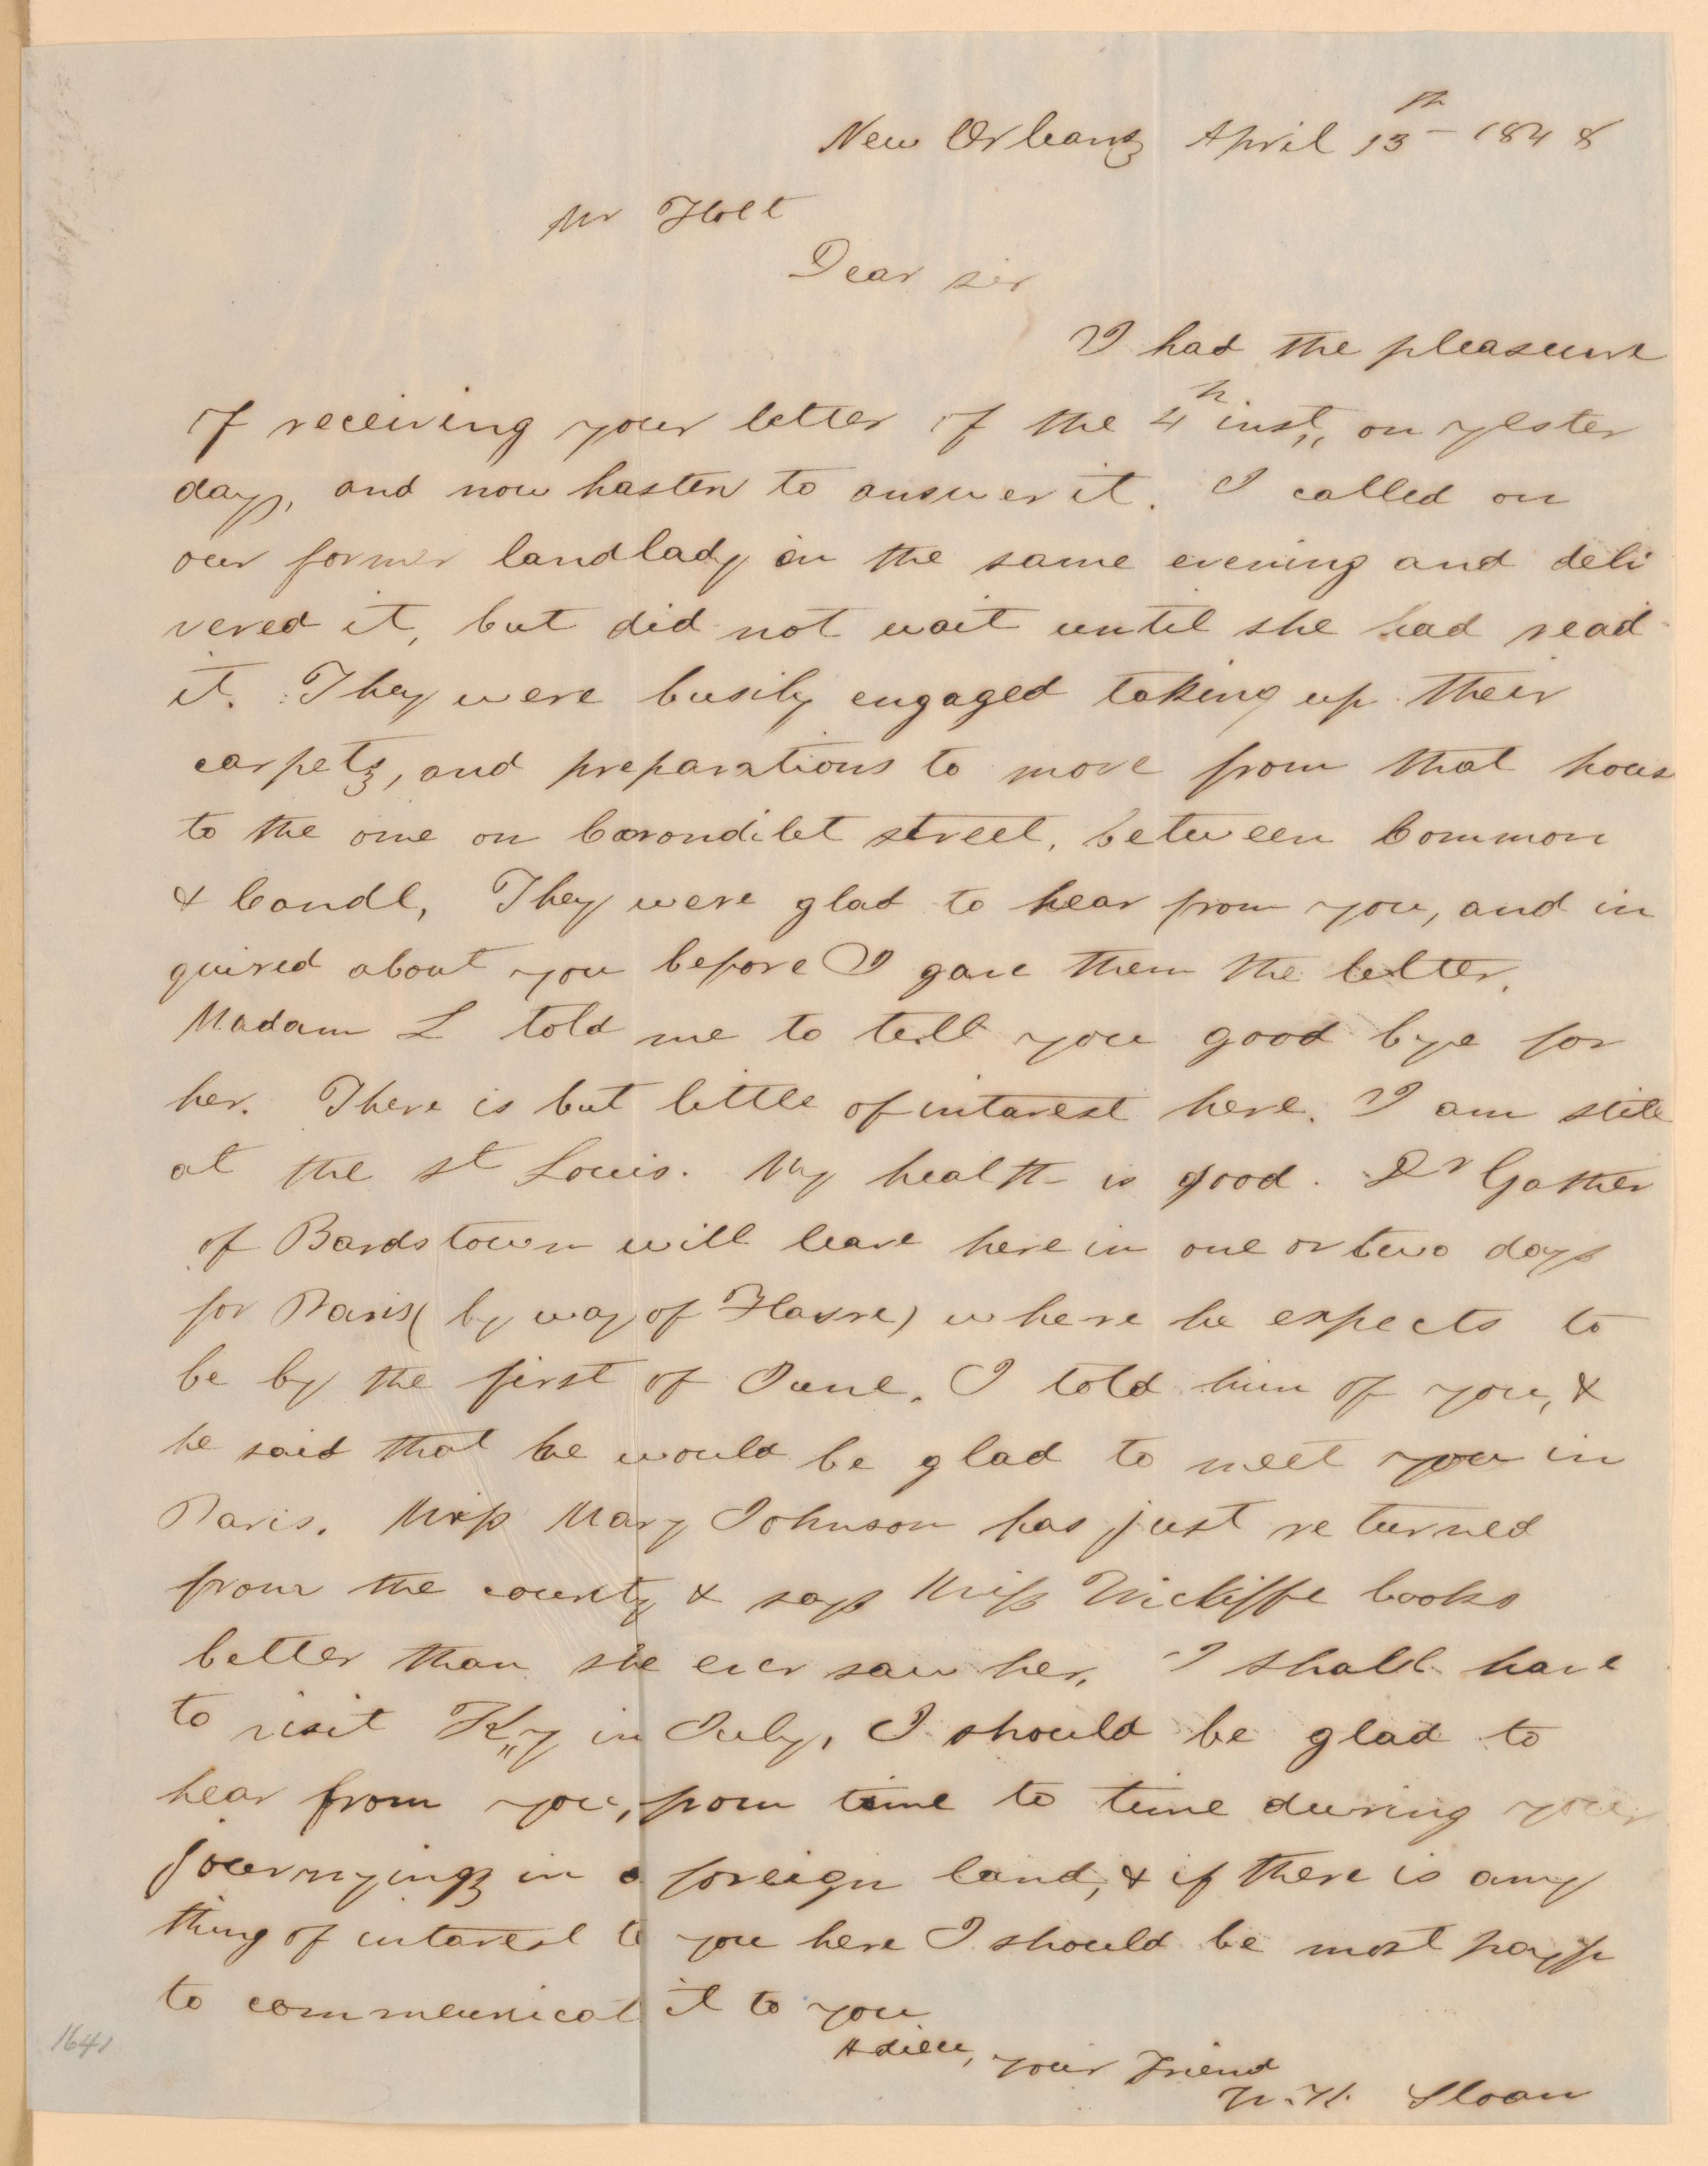 New Orleans April 13th 1848
Mr Holt
Dear sir
I had the pleasure
of receiving your letter of the 4h inst,, on yester
day, and now hasten to answer it. I called on
our former landlady on the same evening and deli
vered it, but did not wait until she had read
it. They were busily engaged taking up their
carpets, and preparations to move from that hous
to the one on Carondilet street, between Common
& Candl, They were glad to hear from you, and in
quired about you before I gave them the letter.
Madam L told me to tell you good bye for
her. There is but little of intarest here. I am still
at the St Louis. My health is good. Dr Gather
of Bardstown will leave here in one or two days
for Paris (by way of Havre) where he expects to
be by the first of June. I told him of you, &
he said that he would be glad to meet you in
Paris. Miss Mary Johnson has just returned
from the county & says Miss Wickliffe looks
better than she ever saw her, I shall have
to visit K,,y in July, I should be glad to
hear from you, from time to time during your
journyings in a foreign land, & if there is any
thing of intarest to you here I should be most happy
to communicat it to you
Adieu, your Friend
Sloan
1641